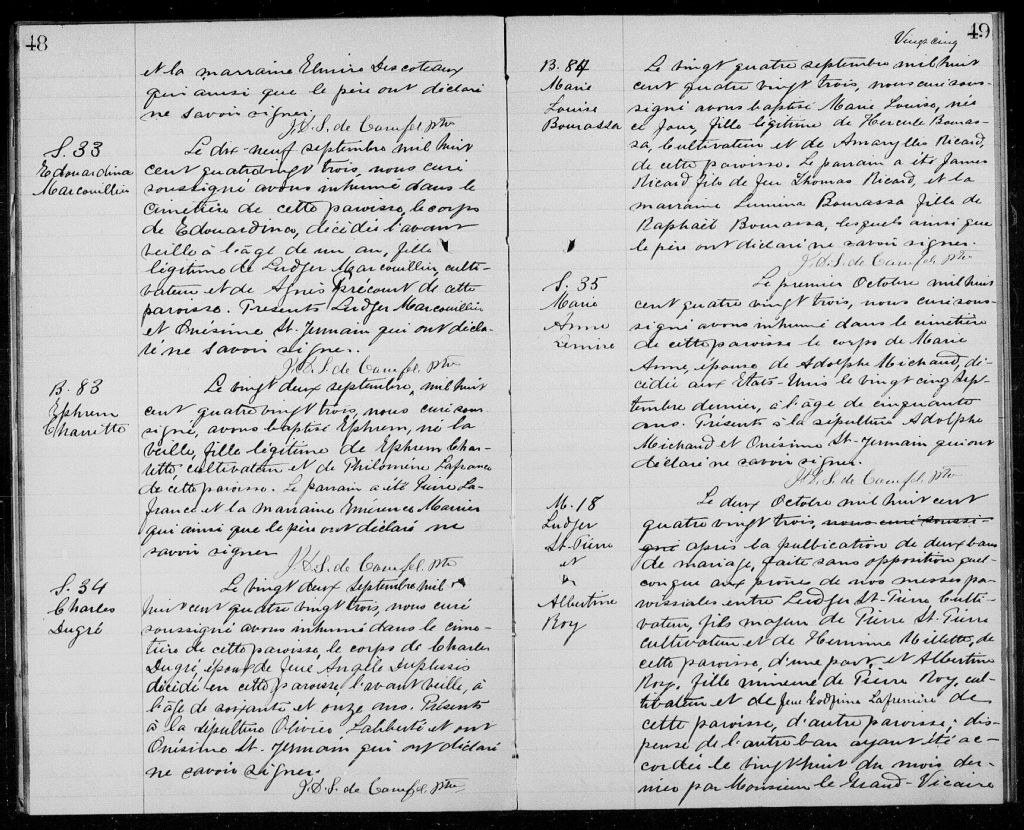 48
et la marraine Elmire Descoteaux
qui ainsi que le père ont déclaré
ne savoir signer.
S. 33
Edouardina
Marcouillier
Le dix-neuf septembre mil huit
cent quatrevingt trois, nous curé
soussigné avons inhumé dans le
cimetière de cette paroisse, le corps
de Edouardina, décédée l'avant
veille à l'âge de un an, fille
légitime de Ludger Marcouillier, culti-
vateur et de Agnès Précourt de cette
paroisse. Présents Ludger Marcouillier
et Onésime St-Germain qui ont décla-
ré ne savoir signer.
B. 83
Ephrem
Charrette
Le vingt deux septembre, mil huit
cent quatre vingt trois, nous curé sous-
signé, avons baptisé Ephrem, né la
veille, fille légitime de Ephrem Char-
rette, cultivateur et de Philomène Lafrance
de cette paroisse. Le parrain a été Pierre La-
france et la marraine Emérence Marier
qui ainsi que le père ont déclaré ne
savoir signer
S. 34
Charles
Dugré
Le vingt deux septembre mil
huit cent quatre vingt trois, nous curé
soussigné avons inhumé dans le cime-
tière de cette paroisse, le corps de Charles
Dugré, époux de feue Angèle Duplessis
décédé en cette paroisse l'avant veille, à
l'âge de soixante et onze ans. Présents
à la sépulture Olivier Laliberté et ont
Onésime St-Germain qui ont déclaré
ne savoir signer.
49
Vingt cinq
B. 84
Marie
Louise
Bourassa
Le vingt quatre septembre mil huit
cent quatre vingt trois, nous curé sous-
signé avons baptisé Marie Louise, née
ce jour, fille légitime de Hercule Bouras-
sa, cultivateur et de Amaryllis Ricard,
de cette paroisse. Le parrain a été James
Ricard fils de feu Thomas Ricard, et la
marraine Lumina Bourassa fille de
Raphaël Bourassa, lesquels ainsi que
le père ont déclaré ne savoir signer.
S. 35
Marie
Anne
Lemire
Le premier Octobre mil huit
cent quatre vingt trois, nous curé sous-
signé avons inhumé dans le cimetière
de cette paroisse le corps de Marie
Anne, épouse de Adolphe Michaud, dé-
cédée aux Etats-Unis le vingt cinq Sept-
tembre dernier, à l'âge de cinquante
ans. Présents à la sépulture Adolphe
Michaud et Onésime St-Germain qui ont
déclaré ne savoir signer.
M. 18
Ludger
St-Pierre
et
Albertine
Roy
Le deux Octobre mil huit cent
quatre vingt trois, nous curé soussi-
gné après la publication de deux bans
de mariage, faite sans opposition quel-
conque aux prônes de nos messes pa-
roissiales entre Ludger St-Pierre culti-
vateur, fils majeur de Pierre St-Pierre
cultivateur et de Hermine Millette, de
cette paroisse, d'une part, et Albertine
Roy, fille mineure de Pierre Roy, cul-
tivateur et de feue Lafrenière de
cette paroisse, d'autre paroisse; dis-
pense de l'autre ban ayant été ac-
cordée le vingt huit du mois der-
nier par Monsieur le Grand-Vicaire